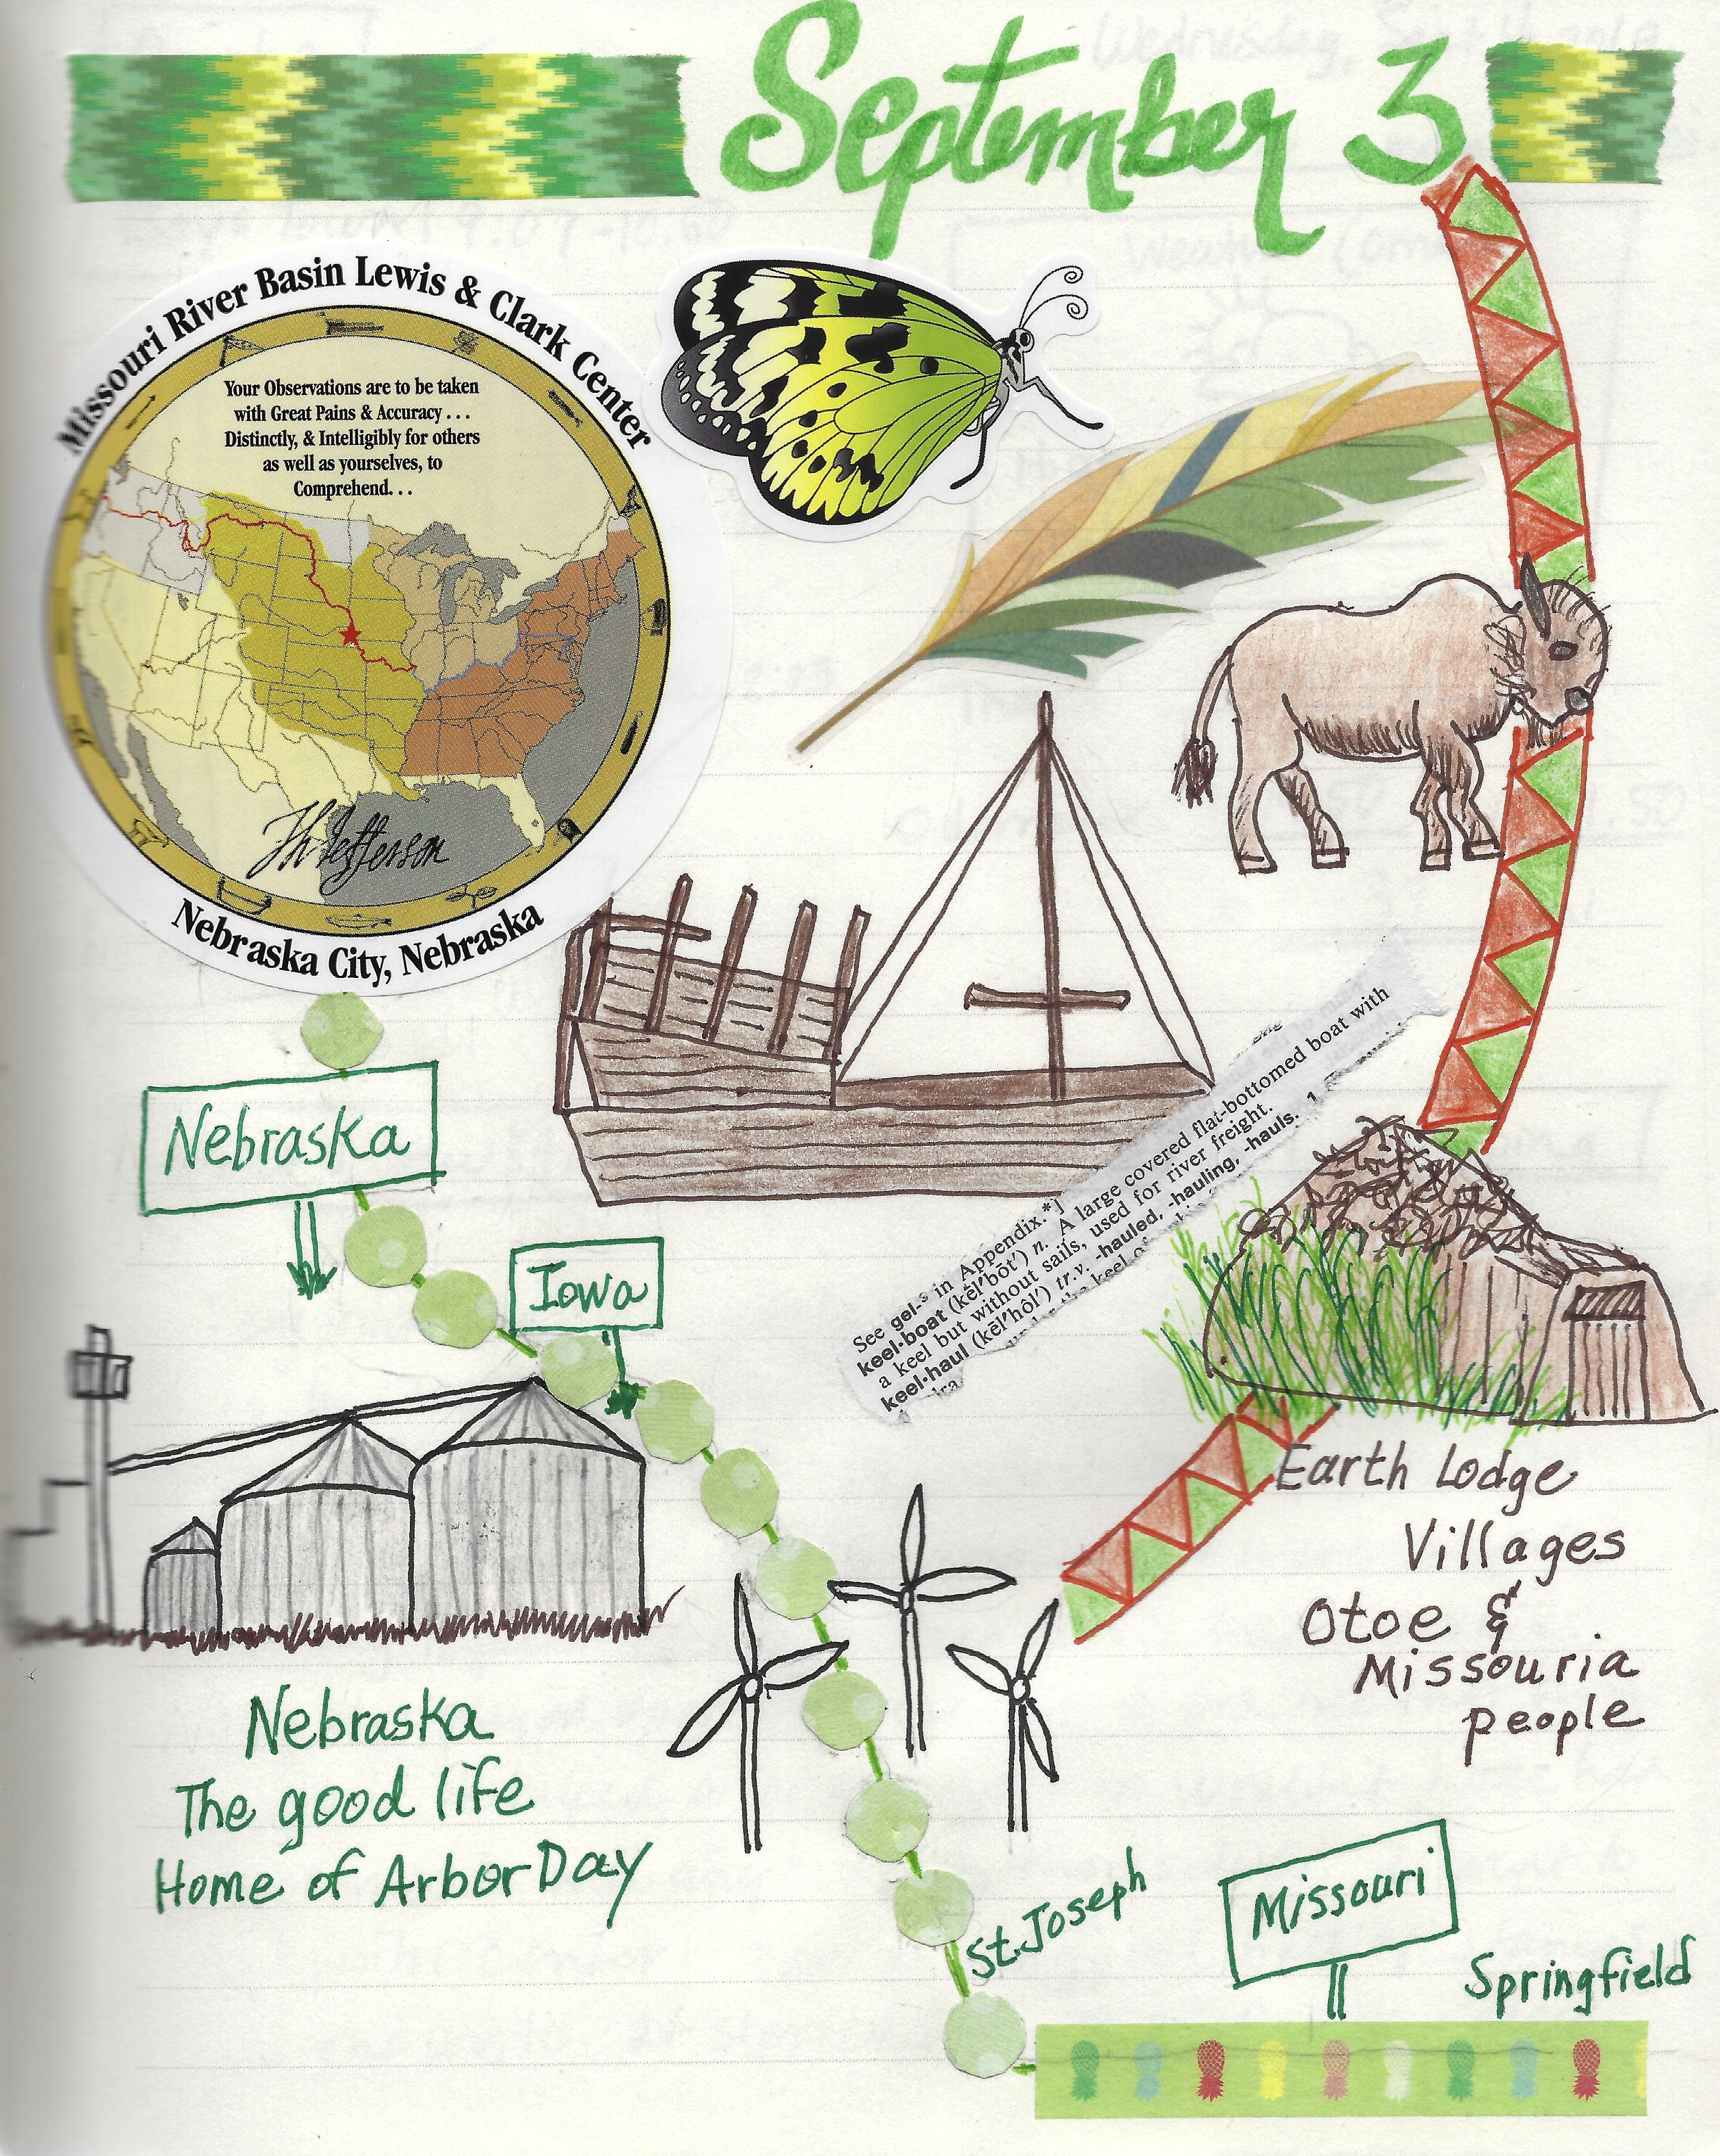 September 3
Missouri River Basin Lewis & Clark Center
Your Observations are to be taken
with Great Pains & Accuracy . . .
Distinctly, & Intelligibly for others
as well as yourselves, to
Comprehend. . .
Th Jefferson
Nebraska City, Nebraska
Nebraska
Iowa
See gel-³ in Appendix.*]
keel·boat (kēl′bōt′) n. A large covered flat-bottomed boat with
a keel but without sails, used for river freight.
keel·haul (kēl′hôl′) tr.v. -hauled, -hauling, -hauls. 1
the keel of
Earth Lodge
Villages
Otoe &
Missouria
people
Nebraska
The good life
Home of Arbor Day
St. Joseph
Missouri
Springfield